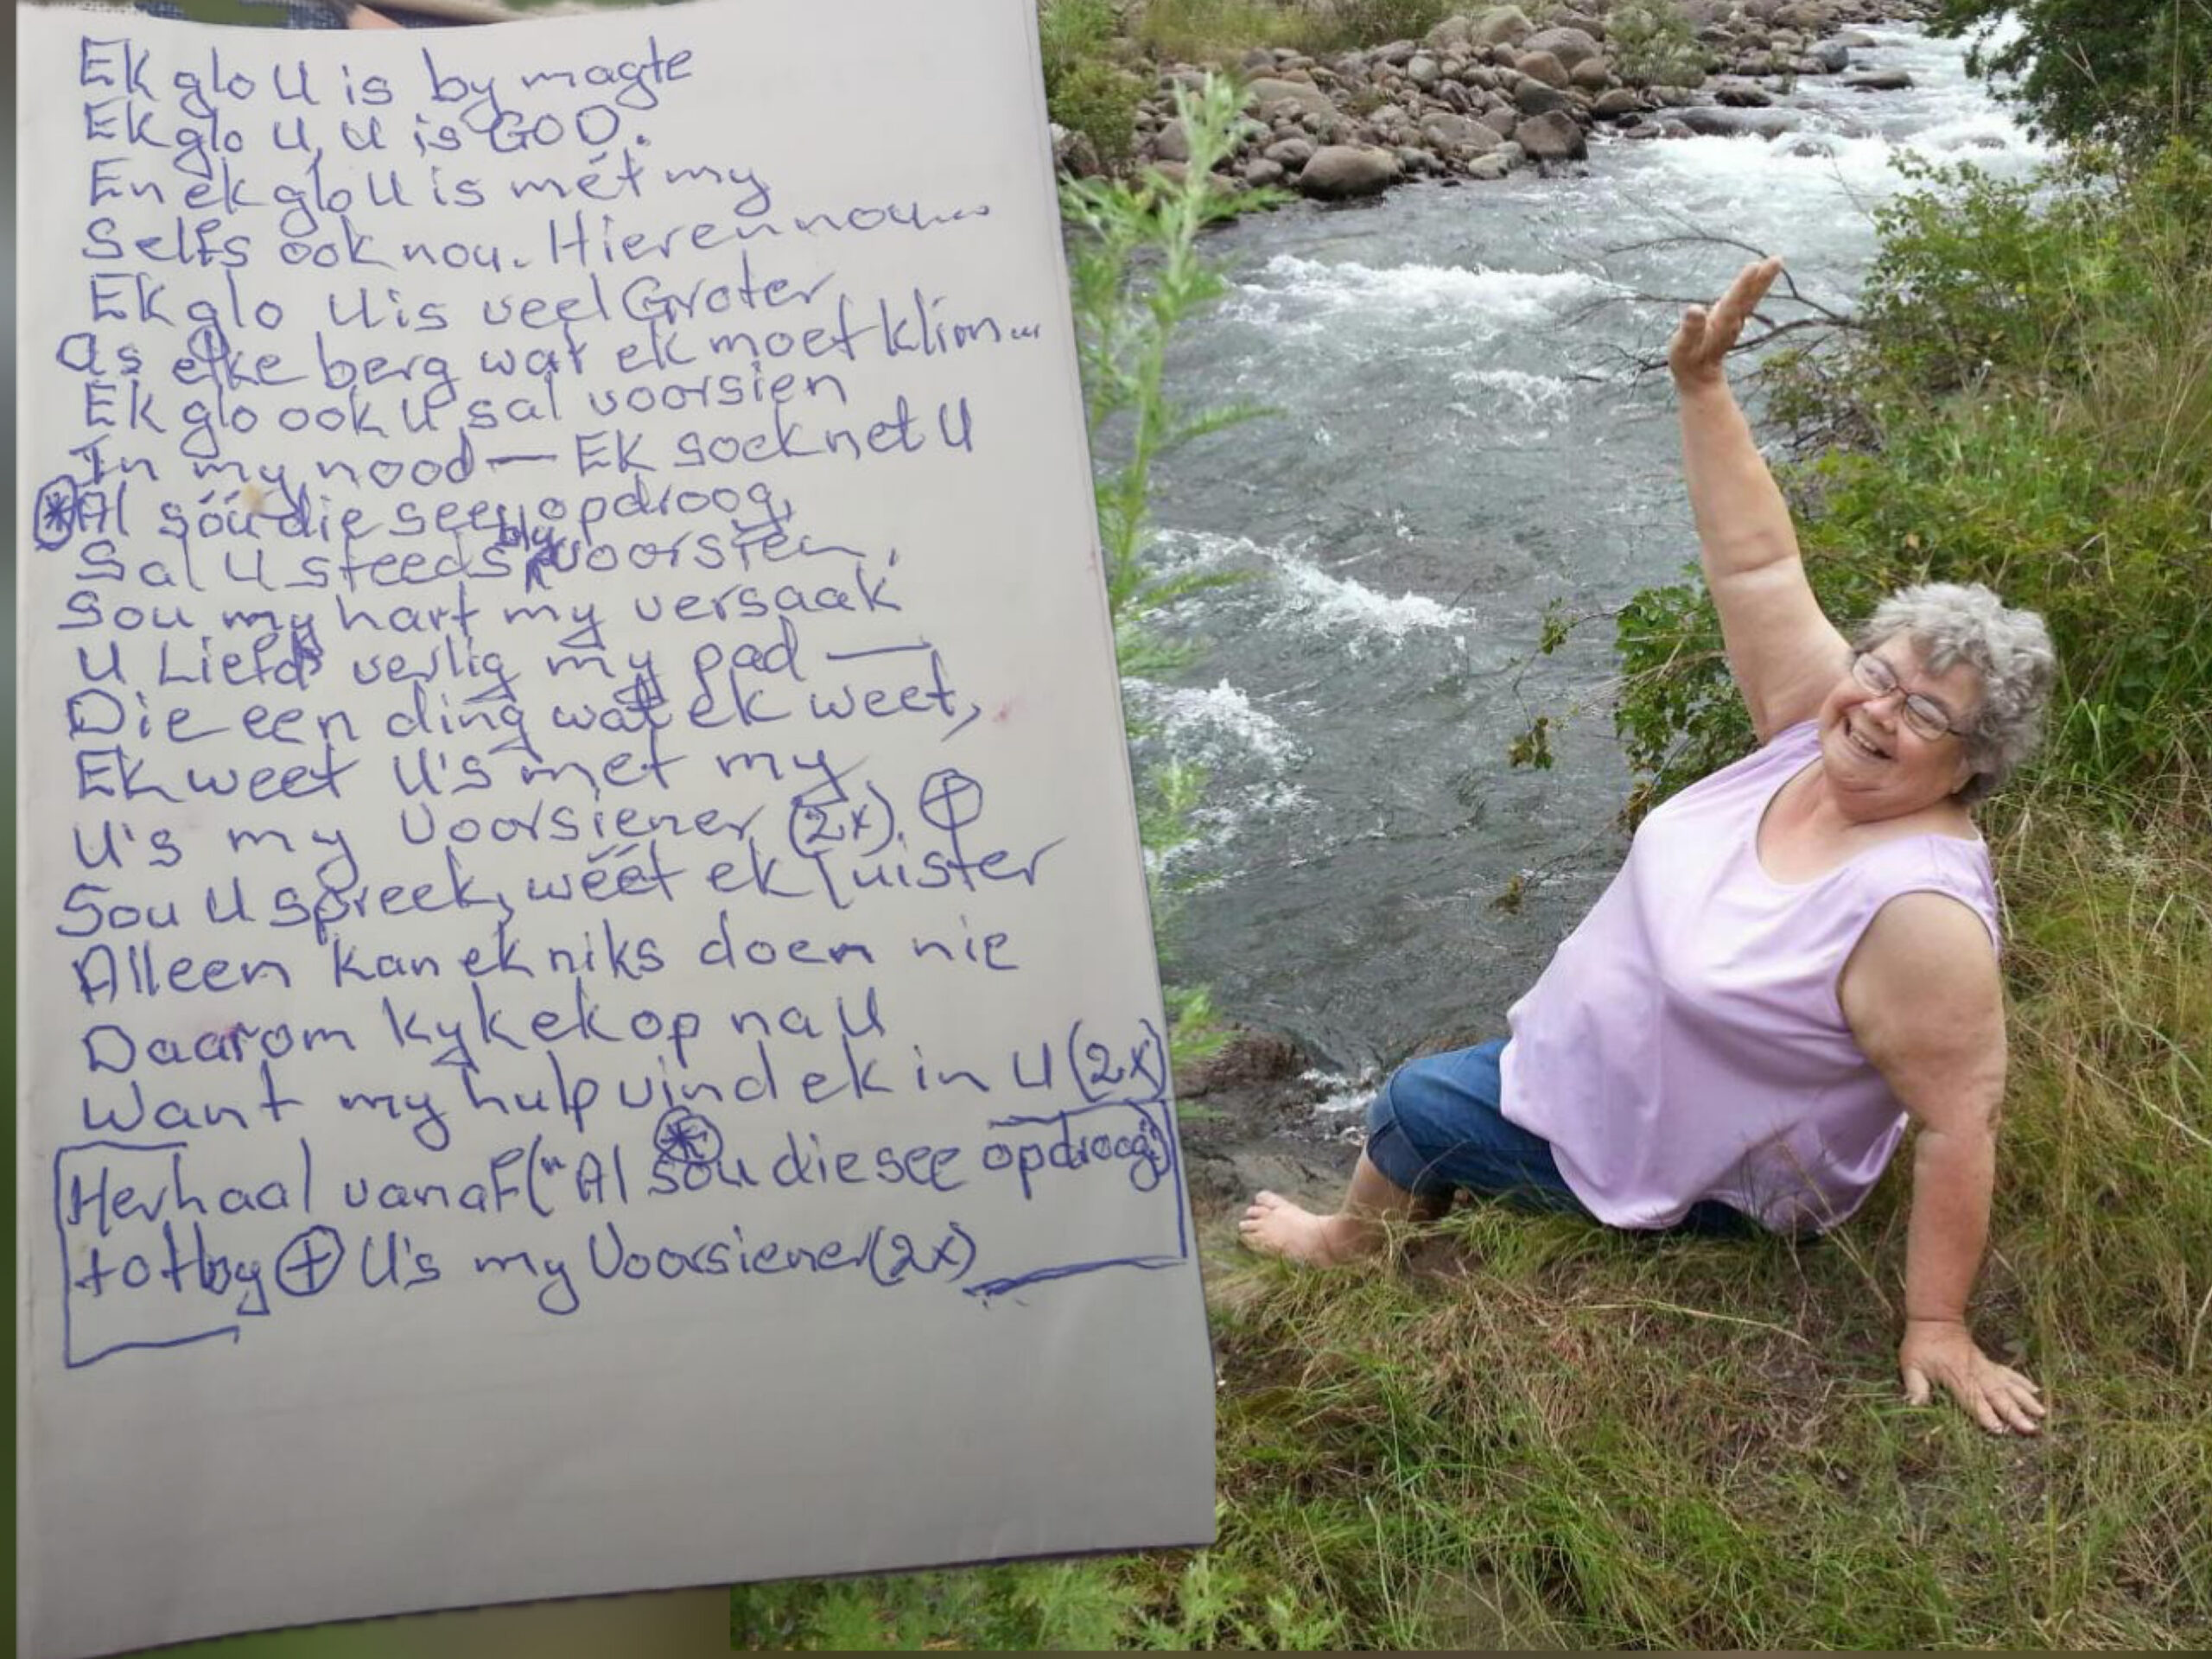 Ek glo U is by magte
Ek glo U, U is GOD.
En ek glo U is mét my
Selfs ook nou. Hier en nou...
Ek glo U is veel Groter
As elke berg wat ek moet klim...
Ek glo ook U sal voorsien
In my nood — Ek soek net U
* Al sóú die see opdroog,
Sal U steeds bly voorsien,
Sou my hart my versaak
U Liefde verlig my pad —
Die een ding wat ek weet,
Ek weet U's met my
U's my Voorsiener (2x). ⊕
Sou U spreek, wéét ek luister
Alleen kan ek niks doen nie
Daarom kyk ek op na U
Want my hulp vind ek in U (2x)
Herhaal vanaf ("Al * sou die see opdroog")
tot by ⊕ U's my Voorsiener (2x)